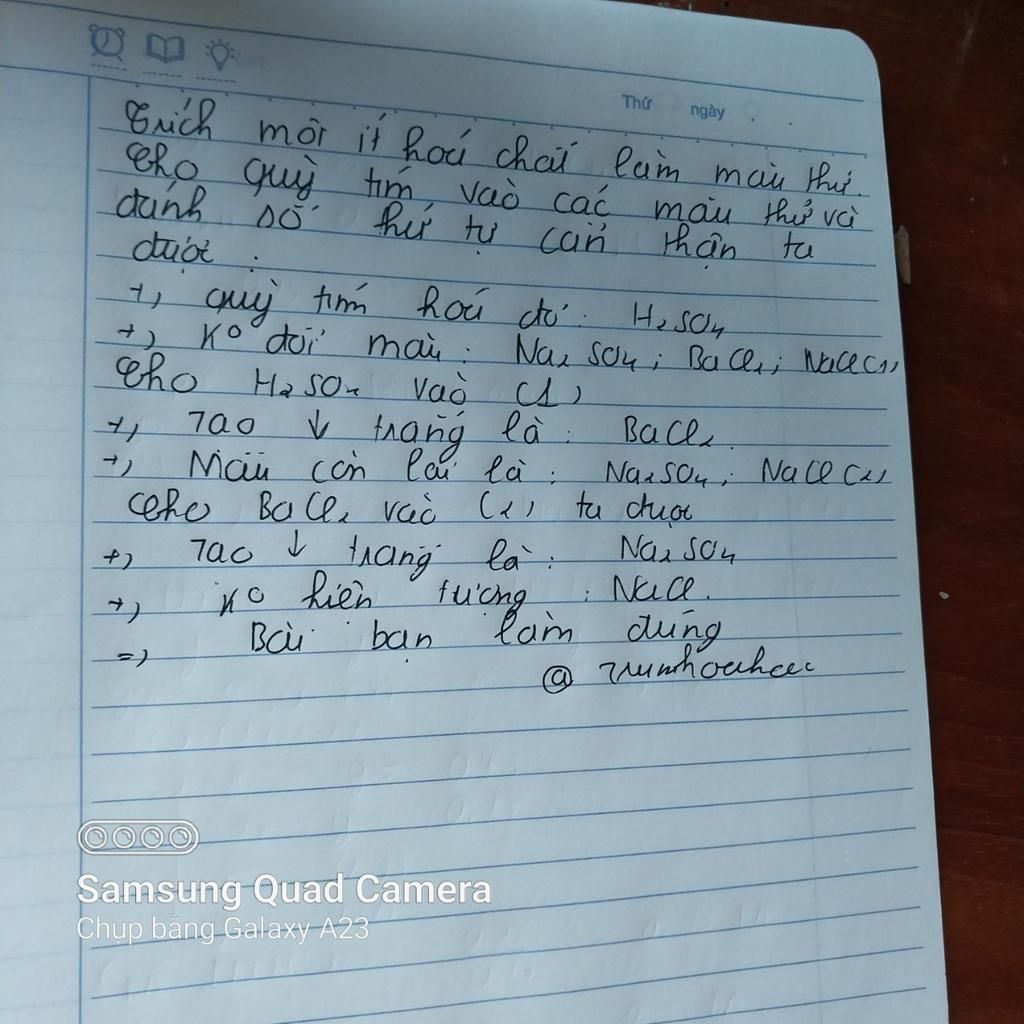 Thứ ngày
Trích một ít hoá chất làm mẫu thử.
Cho quỳ tím vào các mẫu thử và
đánh số thứ tự cẩn thận ta
được :
+, quỳ tím hoá đỏ : H2SO4
+, Ko đổi màu : Na2SO4 ; BaCl2 ; NaCl (1)
Cho H2SO4 vào (1)
+, Tạo ↓ trắng là : BaCl2.
+, Mẫu còn lại là : Na2SO4 ; NaCl (2)
Cho BaCl2 vào (2) ta được
+, Tạo ↓ trắng là : Na2SO4
+, Ko hiện tượng : NaCl.
=) Bài bạn làm đúng
@
Samsung Quad Camera
Chụp bằng Galaxy A23